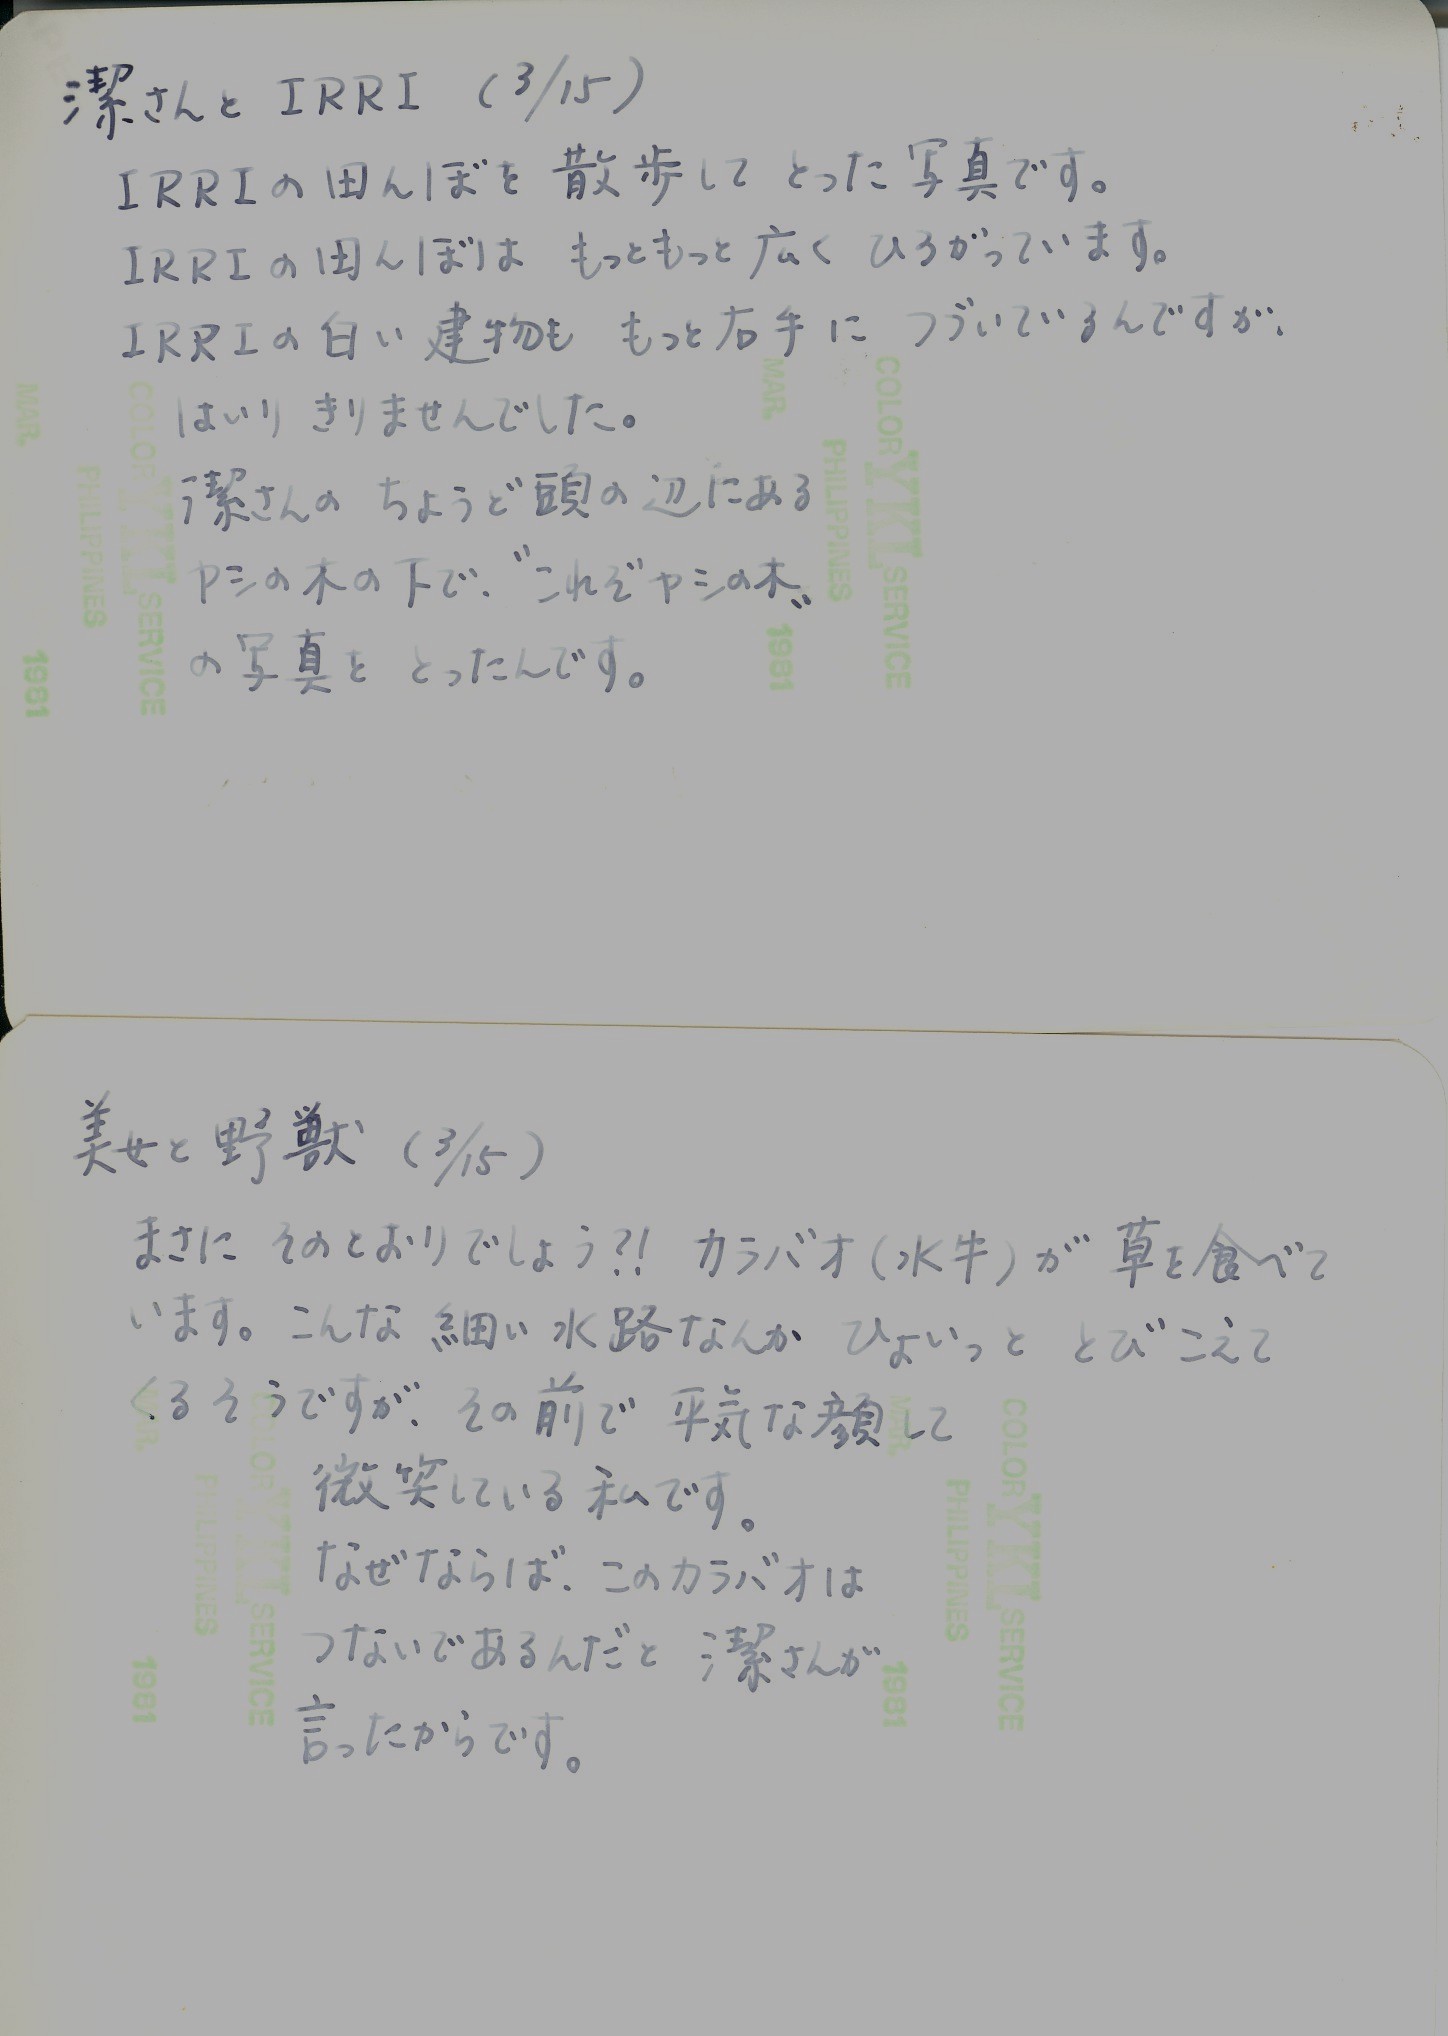 潔さんと IRRI (3/15)
IRRIの田んぼを 散歩して とった 写真です。
IRRIの田んぼは もっともっと 広く ひろがっています。
IRRIの白い建物も もっと右手に つづいているんですが、
はいりきりませんでした。
潔さんの ちょうど頭の辺にある
ヤシの木の下で、"これぞヤシの木"
の写真を とったんです。
MAR. 1981
PHILIPPINES
COLOR YKL SERVICE
MAR. 1981
PHILIPPINES
COLOR YKL SERVICE
美女と野獣 (3/15)
まさに そのとおりでしょう?! カラバオ(水牛)が 草を食べて
います。こんな 細い水路なんか ひょいっと とびこえて
くるそうですが、その前で 平気な顔して
微笑している 私です。
なぜならば、このカラバオは
つないであるんだと 潔さんが
言ったからです。
MAR. 1981
PHILIPPINES
COLOR YKL SERVICE
MAR. 1981
PHILIPPINES
COLOR YKL SERVICE